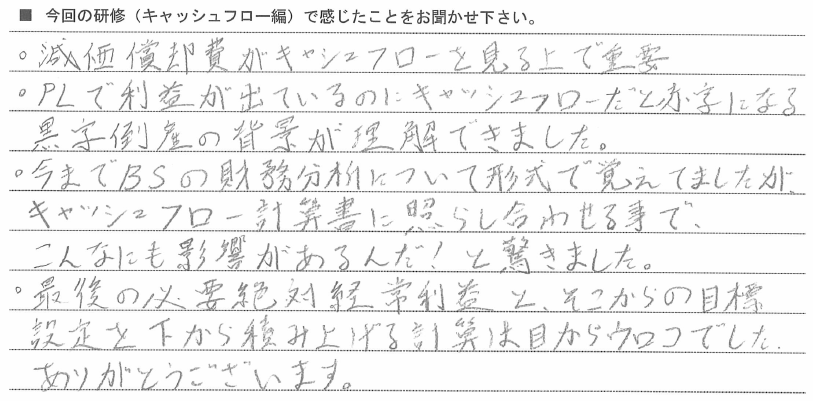 ■ 今回の研修(キャッシュフロー編)で感じたことをお聞かせ下さい。
。減価償却費がキャシュフローを見る上で重要
。PLで利益が出ているのにキャッシュフローだと赤字になる
黒字倒産の背景が理解できました。
。今までBSの財務分析について形式で覚えてましたが、
キャッシュフロー計算書に照らし合わせる事で、
こんなにも影響があるんだ!と驚きました。
。最後の必要絶対経常利益と、そこからの目標
設定を下から積み上げる計算は目からウロコでした、
ありがとうございます。